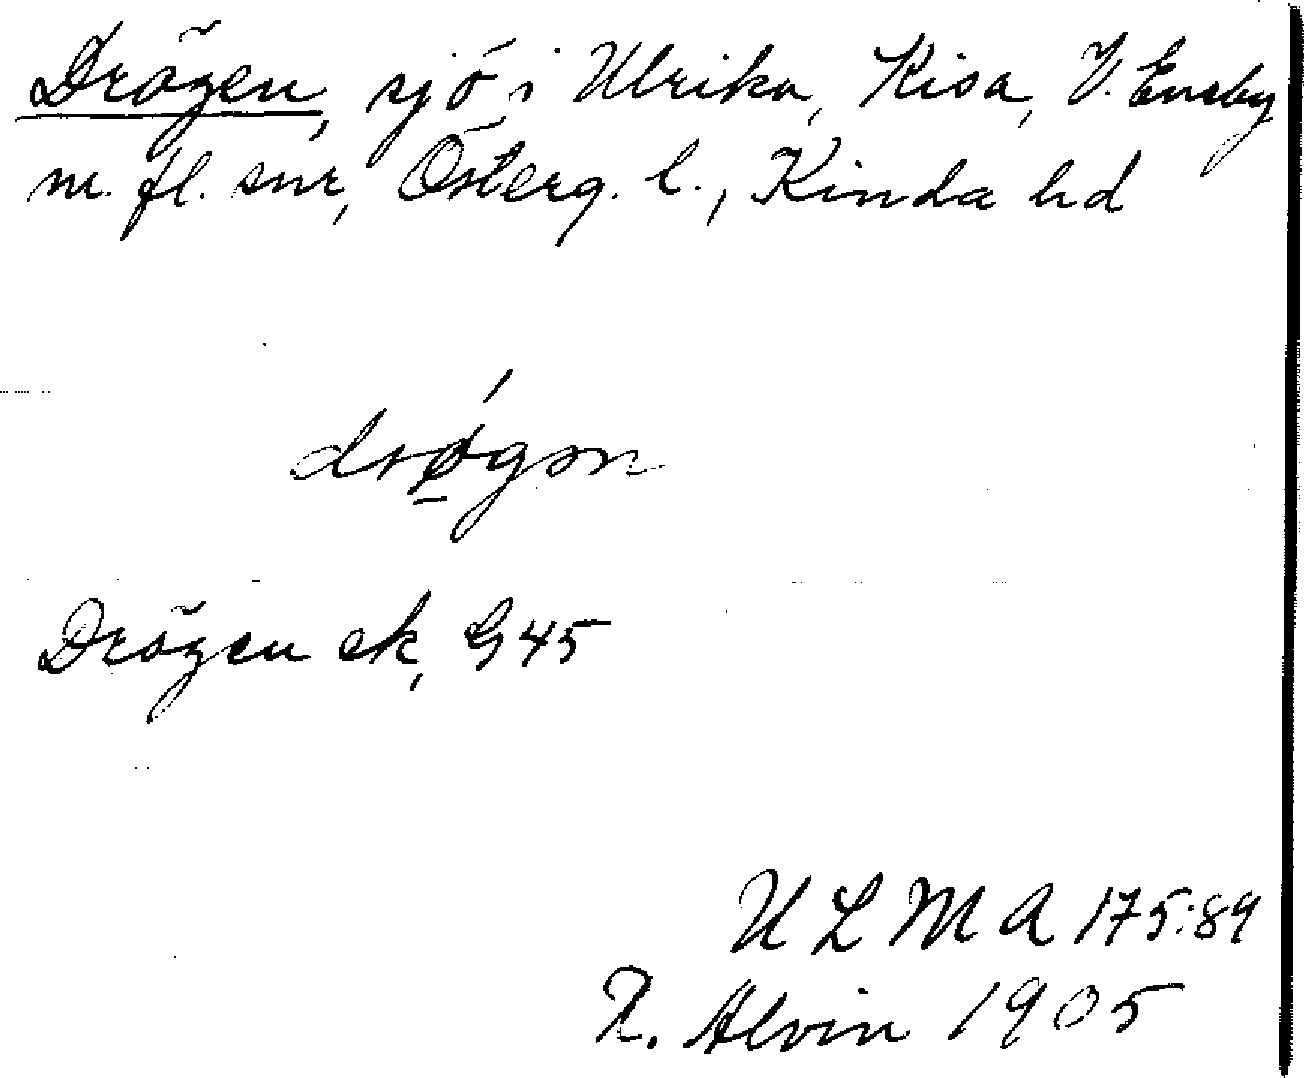 Drögen, sjö i Ulrika, Kisa, V. Eneby
m. fl. snr, Österg. l., Kinda hd
drø̲´gən
Drögen ek, G45
ULMA 175:89
R. Alvin 1905